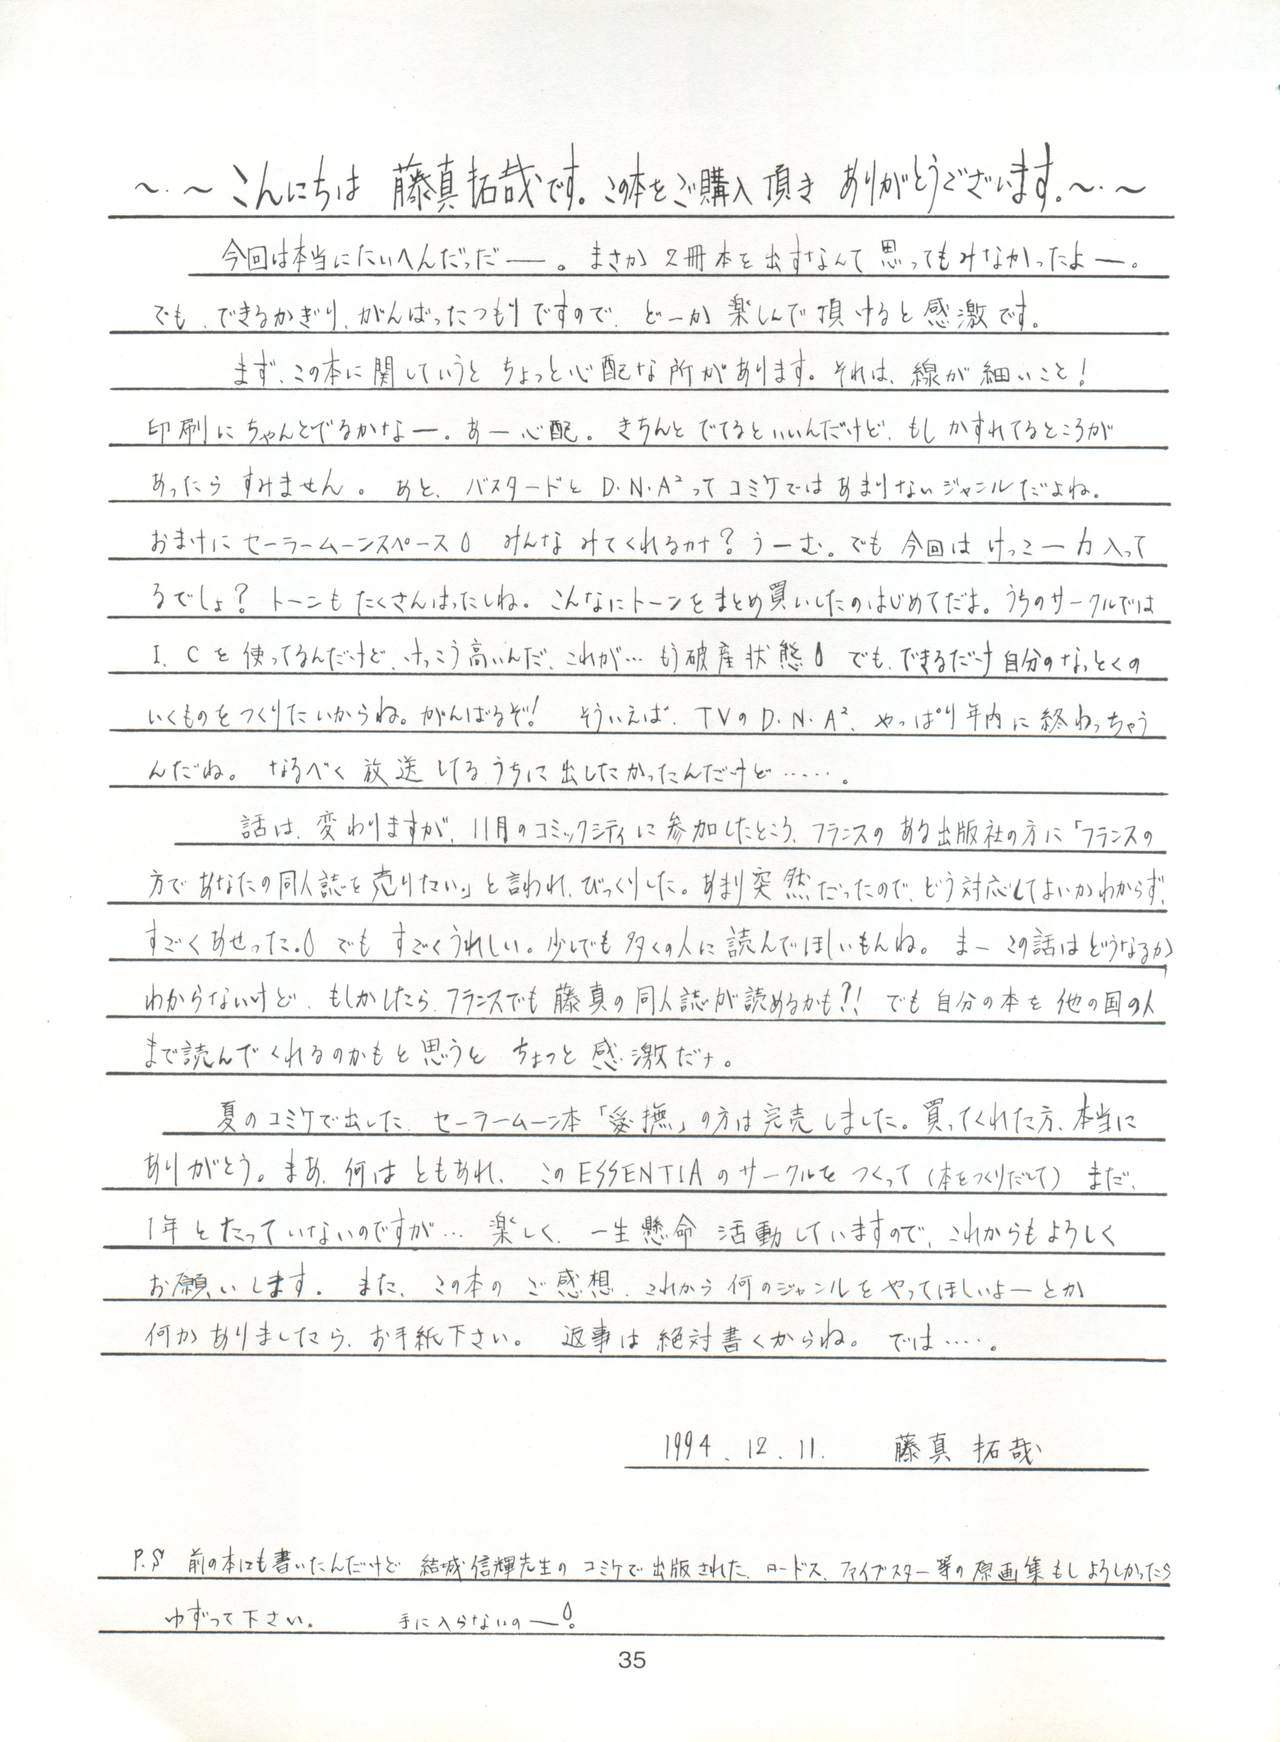 ～・～ こんにちは 藤真拓哉です。この本をご購入頂き ありがとうございます。～・～
今回は本当にたいへんだっだー。まさか2冊本を出すなんて思ってもみなかったよー。
でも、できるかぎり、がんばったつもりですので、どーか楽しんで頂けると感激です。
まず、この本に関していうとちょっと心配な所があります。それは、線が細いこと!
印刷にちゃんとでるかなー。あー心配。きちんとでてるといいんだけど、もしかすれてるところが
あったらすみません。あと、バスタードとD・N・A²ってコミケではあまりないジャンルだよね。
おまけにセーラームーンスペース みんなみてくれるかナ?うーむ。でも今回はけっこー力入って
るでしょ?トーンもたくさんはったしね。こんなにトーンをまとめ買いしたのはじめてだよ。うちのサークルでは
I.Cを使ってるんだけど、けっこう高いんだ、これが…もう破産状態 でも、できるだけ自分のなっとくの
いくものをつくりたいからね。がんばるぞ! そういえば、TVのD・N・A²、やっぱり年内に終わっちゃう
んだね。なるべく放送してるうちに出したかったんだけど……。
話は、変わりますが、11月のコミックシティに参加したところ、フランスのある出版社の方に「フランスの
方であなたの同人誌を売りたい」と言われ、びっくりした。あまり突然だったので、どう対応してよいかわからず、
すごくあせった。でもすごくうれしい。少しでも多くの人に読んでほしいもんね。まーこの話はどうなるか
わからないけど、もしかしたら、フランスでも藤真の同人誌が読めるかも?!でも自分の本を他の国の人
まで読んでくれるのかもと思うとちょっと感激だナ。
夏のコミケで出した、セーラームーン本「愛撫」の方は完売しました。買ってくれた方、本当に
ありがとう。まあ、何はともあれ、このESSENTIAのサークルをつくって(本をつくりだして)まだ、
1年とたっていないのですが…楽しく、一生懸命活動していますので、これからもよろしく
お願いします。また、この本のご感想、これから何のジャンルをやってほしいよーとか
何かありましたら、お手紙下さい。返事は絶対書くからね。では……。
1994.12.11. 藤真 拓哉
P.S 前の本にも書いたんだけど 結城信輝先生のコミケで出版された、ロードス、ファイブスター等の原画集もしよろしかったら
ゆずって下さい。 手に入らないのー!
35